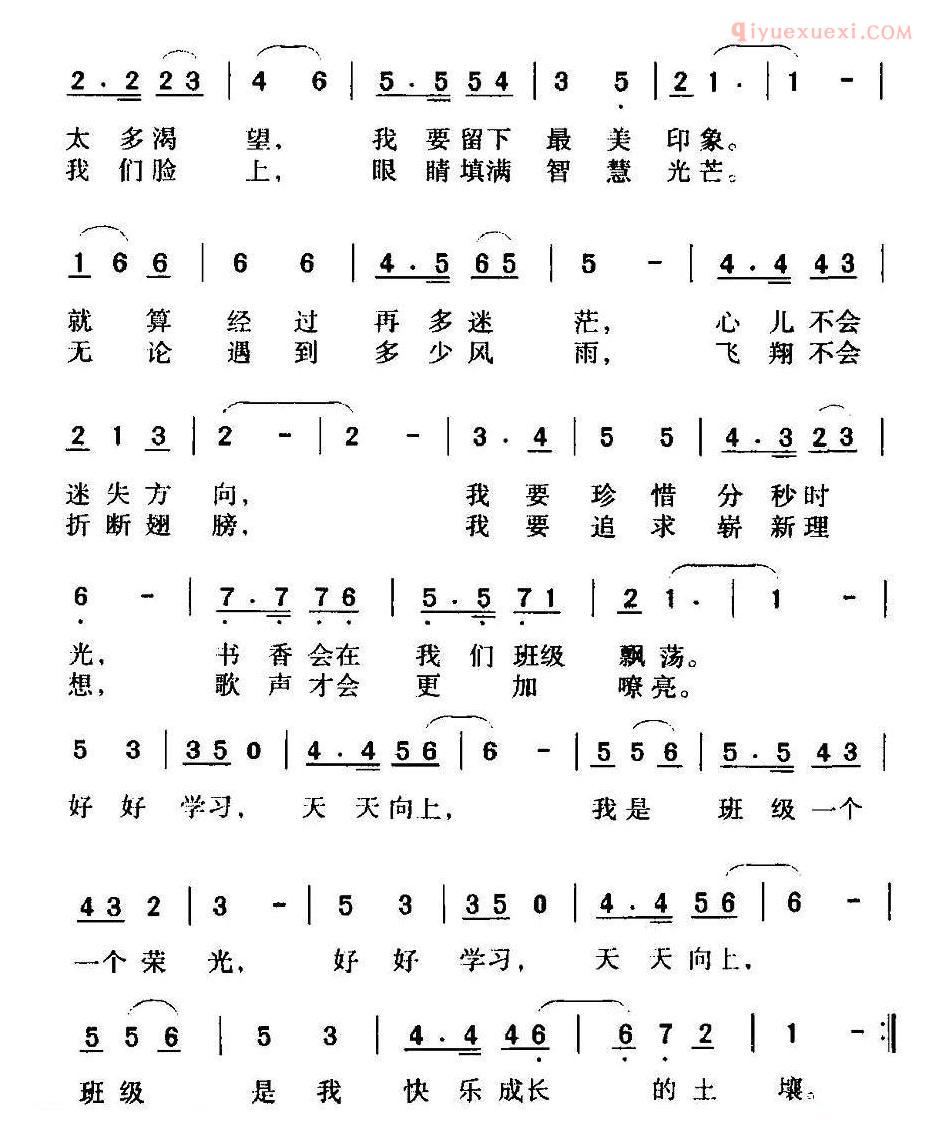 qiyuexuexi.COM
2. 2 2 3 | 4 6 | 5. 5 5 4 | 3 5 | 2 1. | 1 - |
太 多渴 望, 我 要留下 最 美 印象。
我 们脸 上, 眼 睛填满 智 慧 光芒。
1 6 6 | 6 6 | 4. 5 6 5 | 5 - | 4. 4 4 3 |
就 算 经 过 再多迷 茫, 心儿不会
无 论 遇 到 多少风 雨, 飞翔不会
2 1 3 | 2 - | 2 - | 3. 4 | 5 5 | 4. 3 2 3 |
迷失方 向, 我 要 珍 惜 分秒时
折断翅 膀, 我 要 追 求 崭新理
6 - | 7. 7 7 6 | 5. 5 7 1 | 2 1. | 1 - |
光, 书 香会在 我 们班级 飘荡。
想, 歌 声才会 更 加 嘹亮。
5 3 | 3 5 0 | 4. 4 5 6 | 6 - | 5 5 6 | 5. 5 4 3 |
好 好 学习, 天 天向上, 我是 班 级一个
4 3 2 | 3 - | 5 3 | 3 5 0 | 4. 4 5 6 | 6 - |
一个荣 光, 好 好 学习, 天 天向上,
5 5 6 | 5 3 | 4. 4 4 6 | 6 7 2 | 1 - :‖
班级 是 我 快 乐成长 的土 壤。